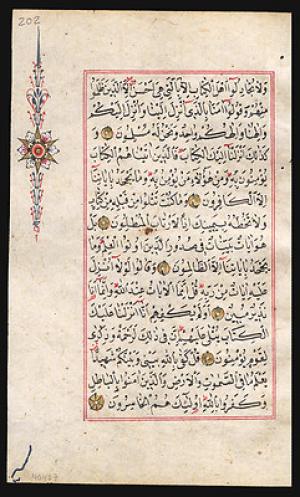 202
وَلَا تُجَادِلُوا أَهْلَ الْكِتَابِ إِلَّا بِالَّتِي هِيَ أَحْسَنُ إِلَّا الَّذِينَ ظَلَمُوا
مِنْهُمْ وَقُولُوا آمَنَّا بِالَّذِي أُنْزِلَ إِلَيْنَا وَأُنْزِلَ إِلَيْكُمْ
وَإِلَٰهُنَا وَإِلَٰهُكُمْ وَاحِدٌ وَنَحْنُ لَهُ مُسْلِمُونَ
وَكَذَٰلِكَ أَنْزَلْنَا إِلَيْكَ الْكِتَابَ فَالَّذِينَ آتَيْنَاهُمُ الْكِتَابَ
يُؤْمِنُونَ بِهِ وَمِنْ هَٰؤُلَاءِ مَنْ يُؤْمِنُ بِهِ وَمَا يَجْحَدُ بِآيَاتِنَا
إِلَّا الْكَافِرُونَ وَمَا كُنْتَ تَتْلُوا مِنْ قَبْلِهِ مِنْ كِتَابٍ
وَلَا تَخُطُّهُ بِيَمِينِكَ إِذًا لَارْتَابَ الْمُبْطِلُونَ بَلْ
هُوَ آيَاتٌ بَيِّنَاتٌ فِي صُدُورِ الَّذِينَ أُوتُوا الْعِلْمَ وَمَا
يَجْحَدُ بِآيَاتِنَا إِلَّا الظَّالِمُونَ وَقَالُوا لَوْلَا أُنْزِلَ
عَلَيْهِ آيَاتٌ مِنْ رَبِّهِ قُلْ إِنَّمَا الْآيَاتُ عِنْدَ اللَّهِ وَإِنَّمَا أَنَا
نَذِيرٌ مُبِينٌ أَوَلَمْ يَكْفِهِمْ أَنَّا أَنْزَلْنَا عَلَيْكَ
الْكِتَابَ يُتْلَىٰ عَلَيْهِمْ إِنَّ فِي ذَٰلِكَ لَرَحْمَةً وَذِكْرَىٰ
لِقَوْمٍ يُؤْمِنُونَ قُلْ كَفَىٰ بِاللَّهِ بَيْنِي وَبَيْنَكُمْ شَهِيدًا
يَعْلَمُ مَا فِي السَّمَٰوَاتِ وَالْأَرْضِ وَالَّذِينَ آمَنُوا بِالْبَاطِلِ
وَكَفَرُوا بِاللَّهِ أُولَٰئِكَ هُمُ الْخَاسِرُونَ